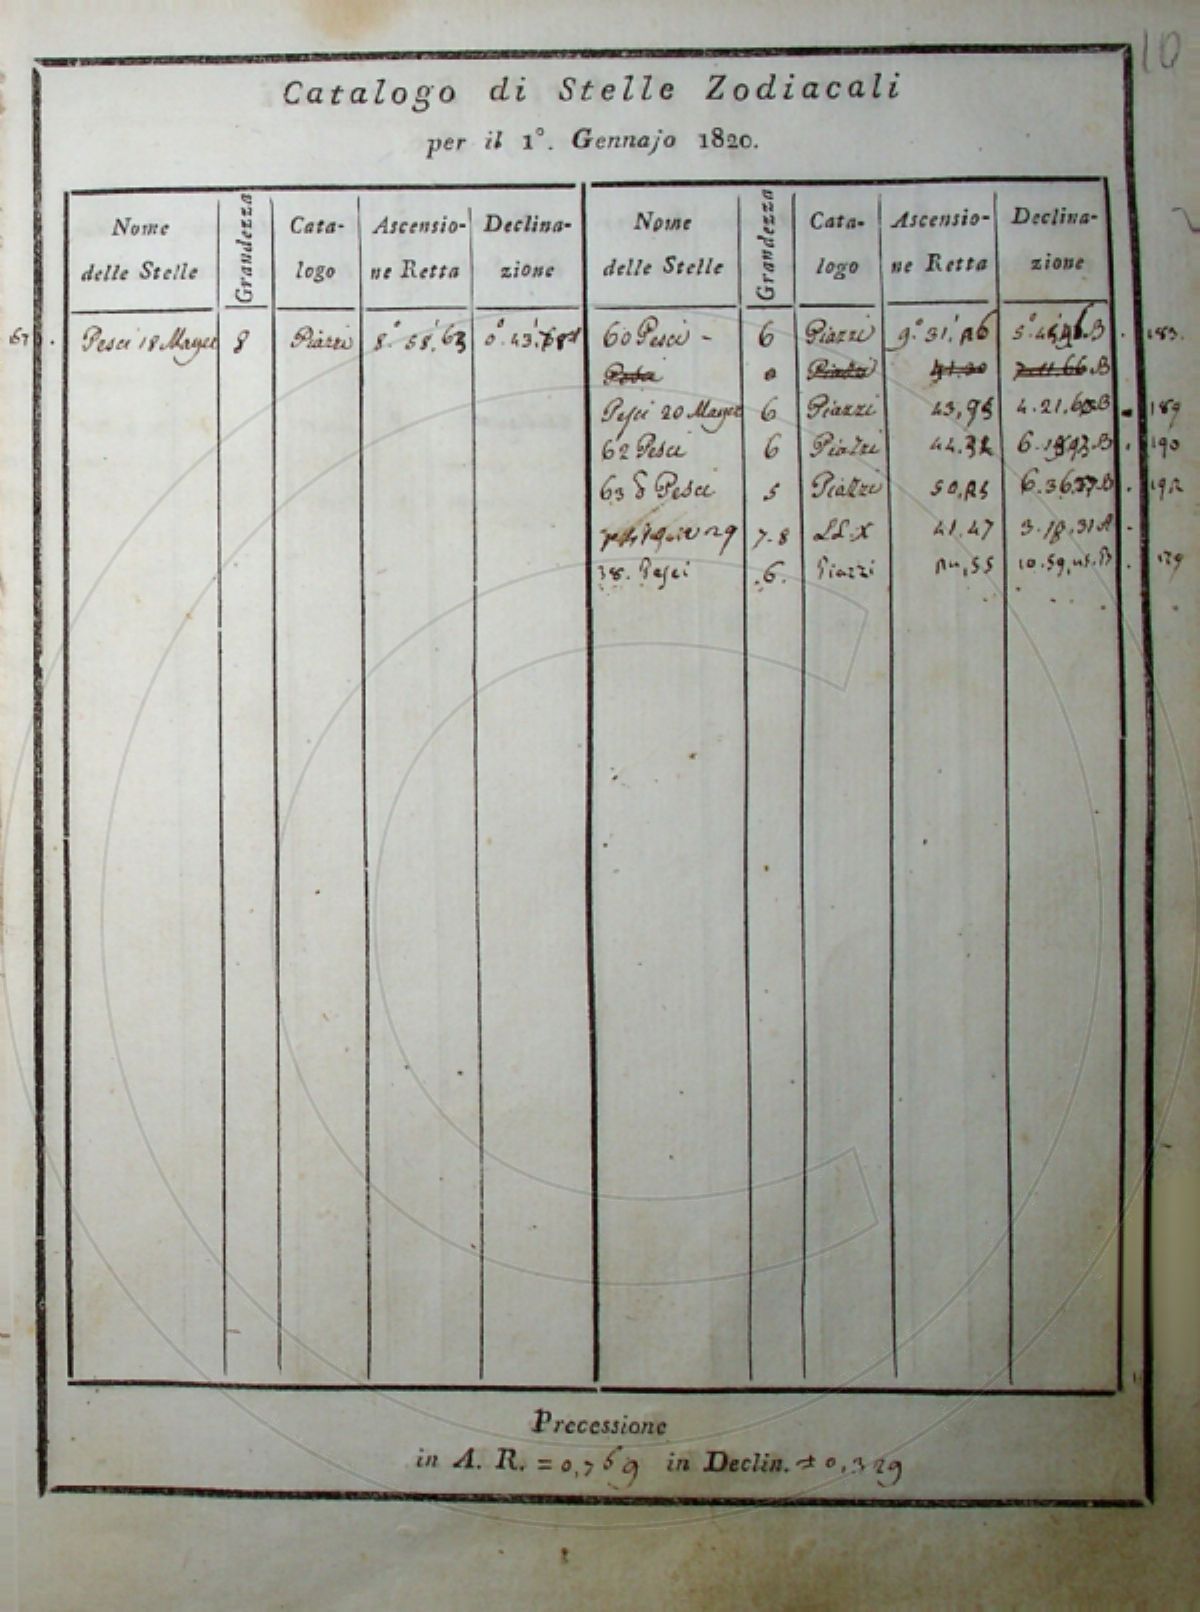 10
Catalogo di Stelle Zodiacali
per il 1°. Gennajo 1820.
Nome delle Stelle Grandezza Cata-logo Ascensio-ne Retta Declina-zione Nome delle Stelle Grandezza Cata-logo Ascensio-ne Retta Declina-zione
Pesci 18 Mayer 8 Piazzi 8.° 58.' 63 0.° 43.'
60 Pesci - 6 Piazzi 9.° 31.' 183.
Pesci 20 Mayer 6 Piazzi 43,95 4.21, B 189
62 Pesci 6 Piazzi 44.32 6. B 190
63 δ Pesci 5 Piazzi 50,25 6.36. B 192
29 7.8 LL.X 41.47 3.18.31 A
38. Pesci 6. Piazzi 24,55 10.59,45.B 129
Precessione
in A. R. = 0,769 in Declin. ± 0,329